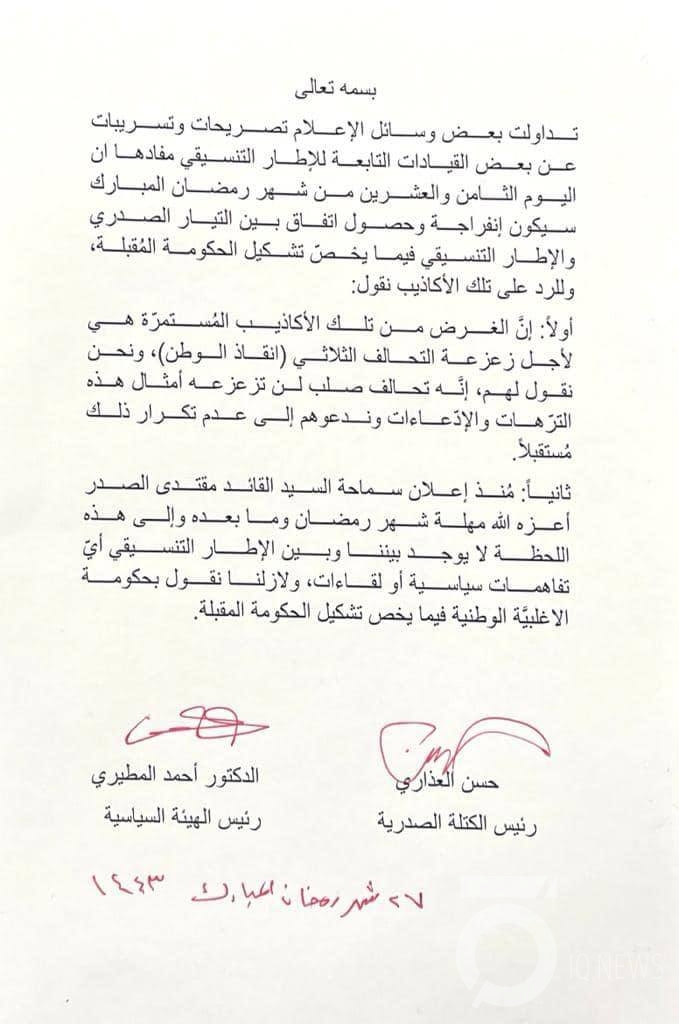 بسمه تعالى
تداولت بعض وسائل الإعلام تصريحات وتسريبات
عن بعض القيادات التابعة للإطار التنسيقي مفادها ان
اليوم الثامن والعشرين من شهر رمضان المبارك
سيكون إنفراجة وحصول اتفاق بين التيار الصدري
والإطار التنسيقي فيما يخصّ تشكيل الحكومة المُقبلة،
وللرد على تلك الأكاذيب نقول:
أولاً: إنَّ الغرض من تلك الأكاذيب المُستمرّة هي
لأجل زعزعة التحالف الثلاثي (انقاذ الوطن)، ونحن
نقول لهم، إنَّه تحالف صلب لن تزعزعه أمثال هذه
الترّهات والإدّعاءات وندعوهم إلى عدم تكرار ذلك
مُستقبلاً.
ثانياً: مُنذ إعلان سماحة السيد القائد مقتدى الصدر
أعزه الله مهلة شهر رمضان وما بعده وإلى هذه
اللحظة لا يوجد بيننا وبين الإطار التنسيقي أيّ
تفاهمات سياسية أو لقاءات، ولازلنا نقول بحكومة
الاغلبيَّة الوطنية فيما يخص تشكيل الحكومة المقبلة.
حسن العذاري
رئيس الكتلة الصدرية
الدكتور أحمد المطيري
رئيس الهيئة السياسية
٢٧ شهر رمضان المبارك ١٤٤٣
IQ NEWS